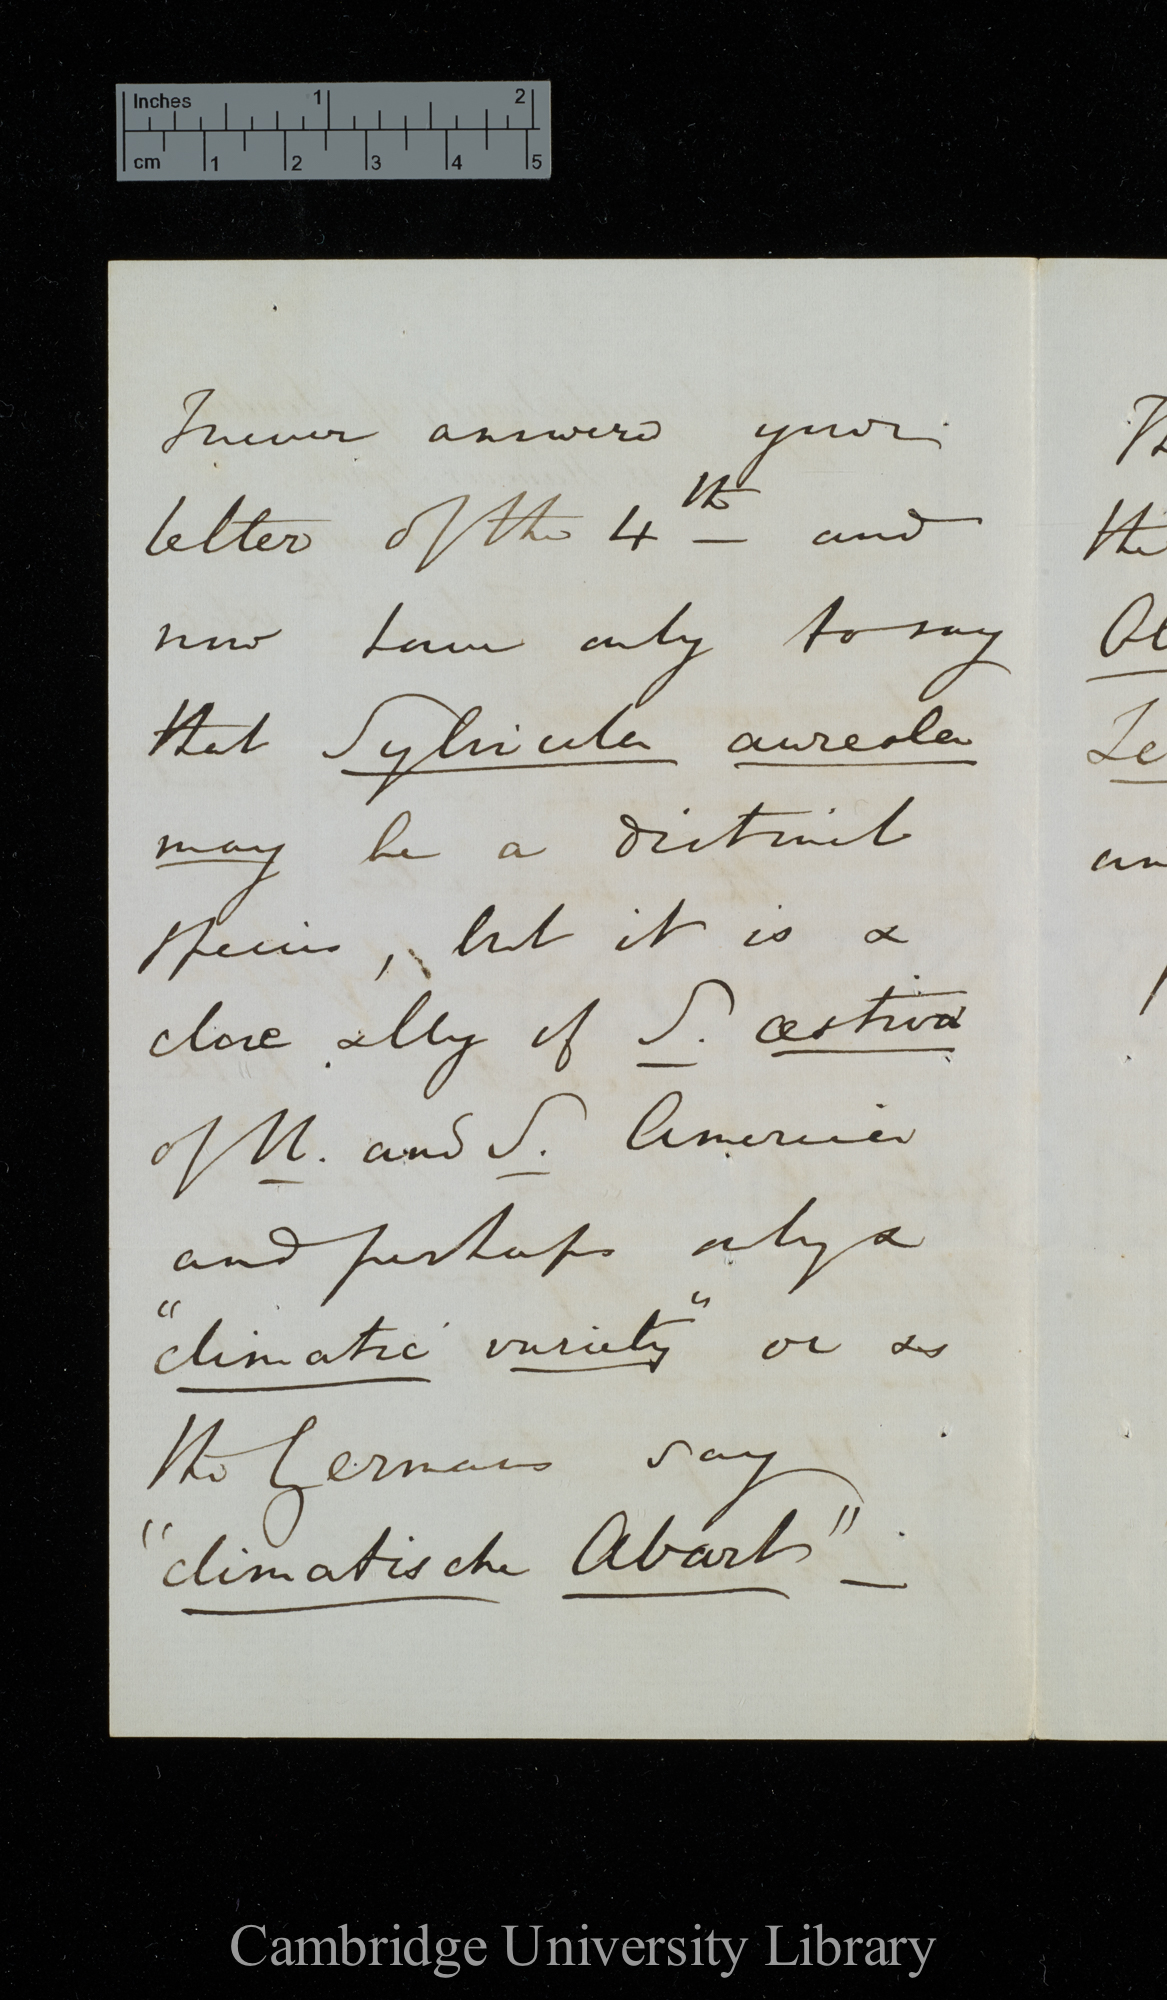 Inches 1 2
cm 1 2 3 4 5
I never answered your
letter of the 4th and
now have only to say
that Sylvicola aureola
may be a distinct
species, but it is a
close ally of S. æstiva
of N. and S. America
and perhaps only a
"climatic variety" or as
the Germans say
"climatische Abart" —
the
an
Cambridge University Library